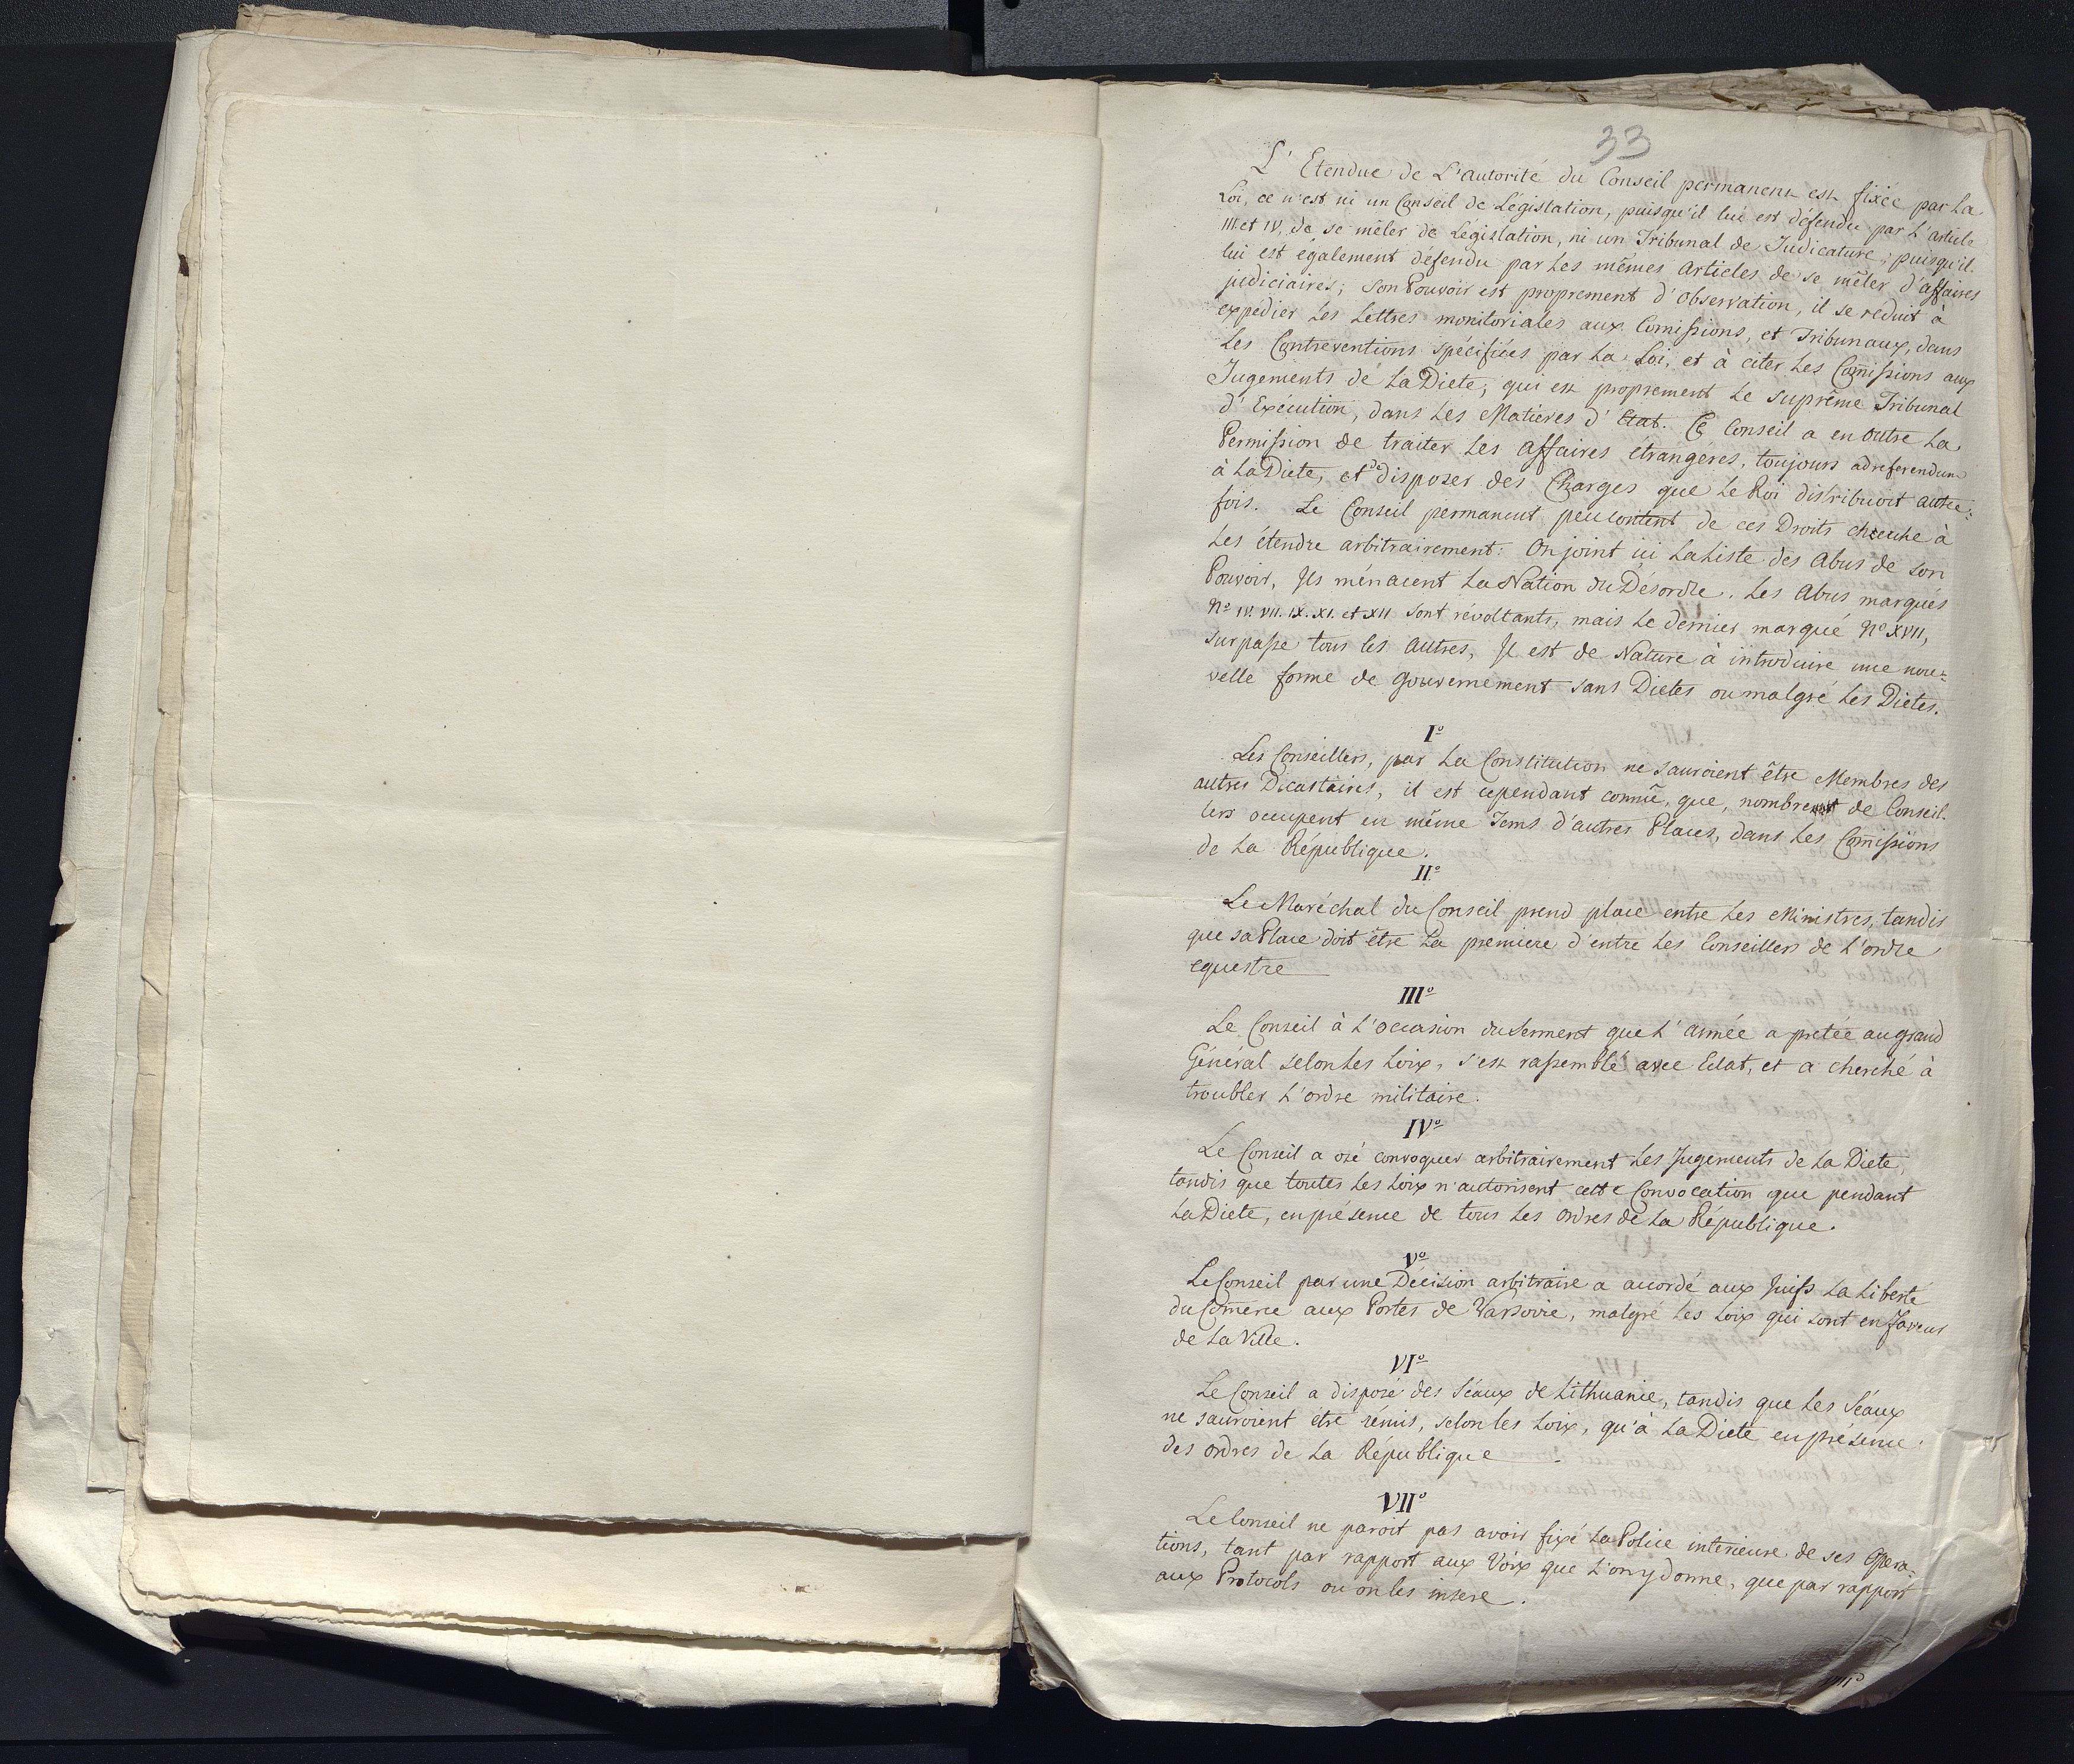 33
L' Etendue de L'autorité du Conseil permanent est fixée par La
Loi, ce n'est ni un Conseil de Législation, puisqu'il lui est défendu par L'article
III. et IV. de se mêler de Législation, ni un Tribunal de Judicature, puisqu'il
lui est également défendu par Les mêmes Articles de se mêler d'affaires
judiciaires; Son Pouvoir est proprement d'observation, il se réduit à
expédier Les Lettres monitoriales aux Comissions, et Tribunaux, dans
Les Contreventions spécifiées par La Loi, et à citer Les Comissions aux
Jugements de La Diete, qui est proprement Le suprême Tribunal
d'Exécution, dans Les Matières d'Etat. Ce Conseil a en outre La
Permission de traiter Les affaires étrangères, toujours ad referendum
à La Diete, et de disposer des Charges que Le Roi distribuoit autre=
fois. Le Conseil permanent peu content de ces Droits cherche à
Les étendre arbitrairement: On joint ici La Liste des Abus de son
Pouvoir, Ils ménacent La Nation du Désordre. Les Abus marqués
No IV. VII. IX. XI. et XII sont révoltants, mais Le dernier marqué No XVII,
surpasse tous les autres, Il est de Nature à introduire une nou=
velle forme de gouvernement sans Dietes ou malgré Les Dietes.
Io
Les Conseillers, par La Constitution ne sauroient être Membres des
autres Dicastaires, il est cependant connû, que, nombre de Conseil=
lers occupent en même Tems d'autres Places, dans Les Comissions
de La République.
IIo
Le Maréchal du Conseil prend place entre Les Ministres, tandis
que sa Place doit être La premiere d'entre Les Conseillers de L'ordre
equestre
IIIo
Le Conseil à L'occasion du Serment que L'armée a pretée au grand
Général selon Les Loix, s'est rassemblé avec Eclat, et a cherché à
troubler L'ordre militaire.
IVo
Le Conseil a osé convoquer arbitrairement Les Jugements de La Diete,
tandis que toutes Les Loix n'autorisent cette Convocation que pendant
La Diete, en présence de tous Les ordres de La République.
Vo
Le Conseil par une Décision arbitraire a accordé aux Juifs La Liberté
du Comerce aux Portes de Warsovie, malgré Les Loix qui sont en faveur
de La Ville.
VIo
Le Conseil a disposé des Séaux de Lithuanie, tandis que Les Séaux
ne sauroient être rémis, selon les Loix, qu'à La Diete en présence
des ordres de La République
VIIo
Le Conseil ne paroit pas avoir fixé La Police interieure de ses Opera=
tions, tant par rapport aux Voix que L'on y donne, que par rapport
aux Protocols ou on les insere.
VIIIo